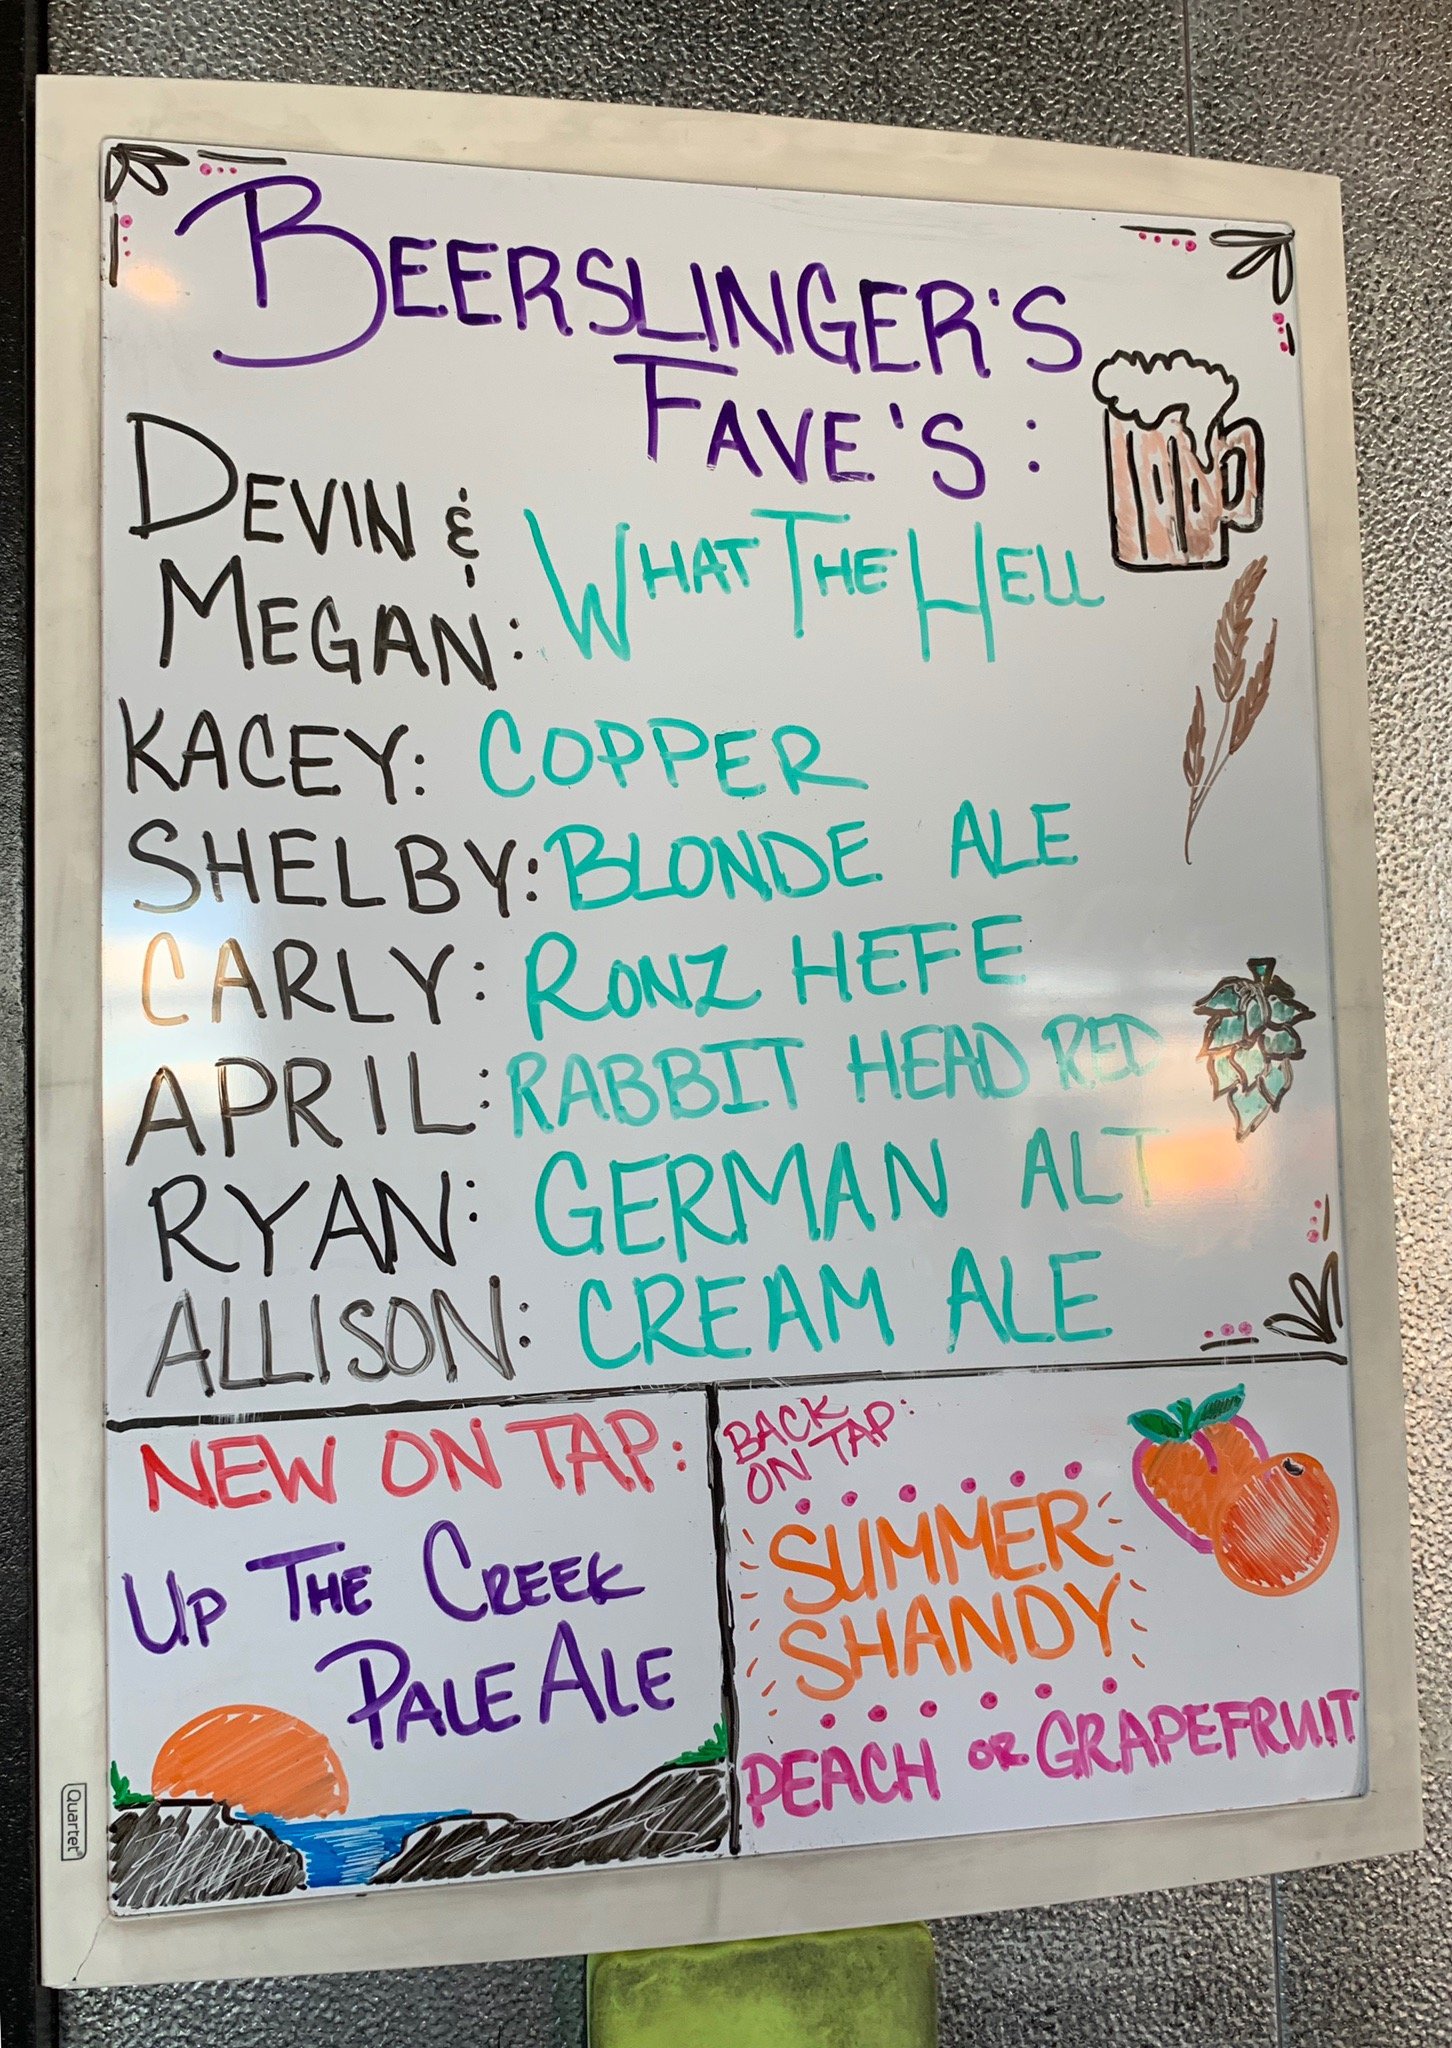 BEERSLINGER'S
FAVE'S:
DEVIN &
MEGAN: WHAT THE HELL
KACEY: COPPER
SHELBY: BLONDE ALE
CARLY: RONZ HEFE
APRIL: RABBIT HEAD RED
RYAN: GERMAN ALT
ALLISON: CREAM ALE
NEW ON TAP:
UP THE CREEK
PALE ALE
BACK
ON TAP:
SUMMER
SHANDY
PEACH OR GRAPEFRUIT
Quartet